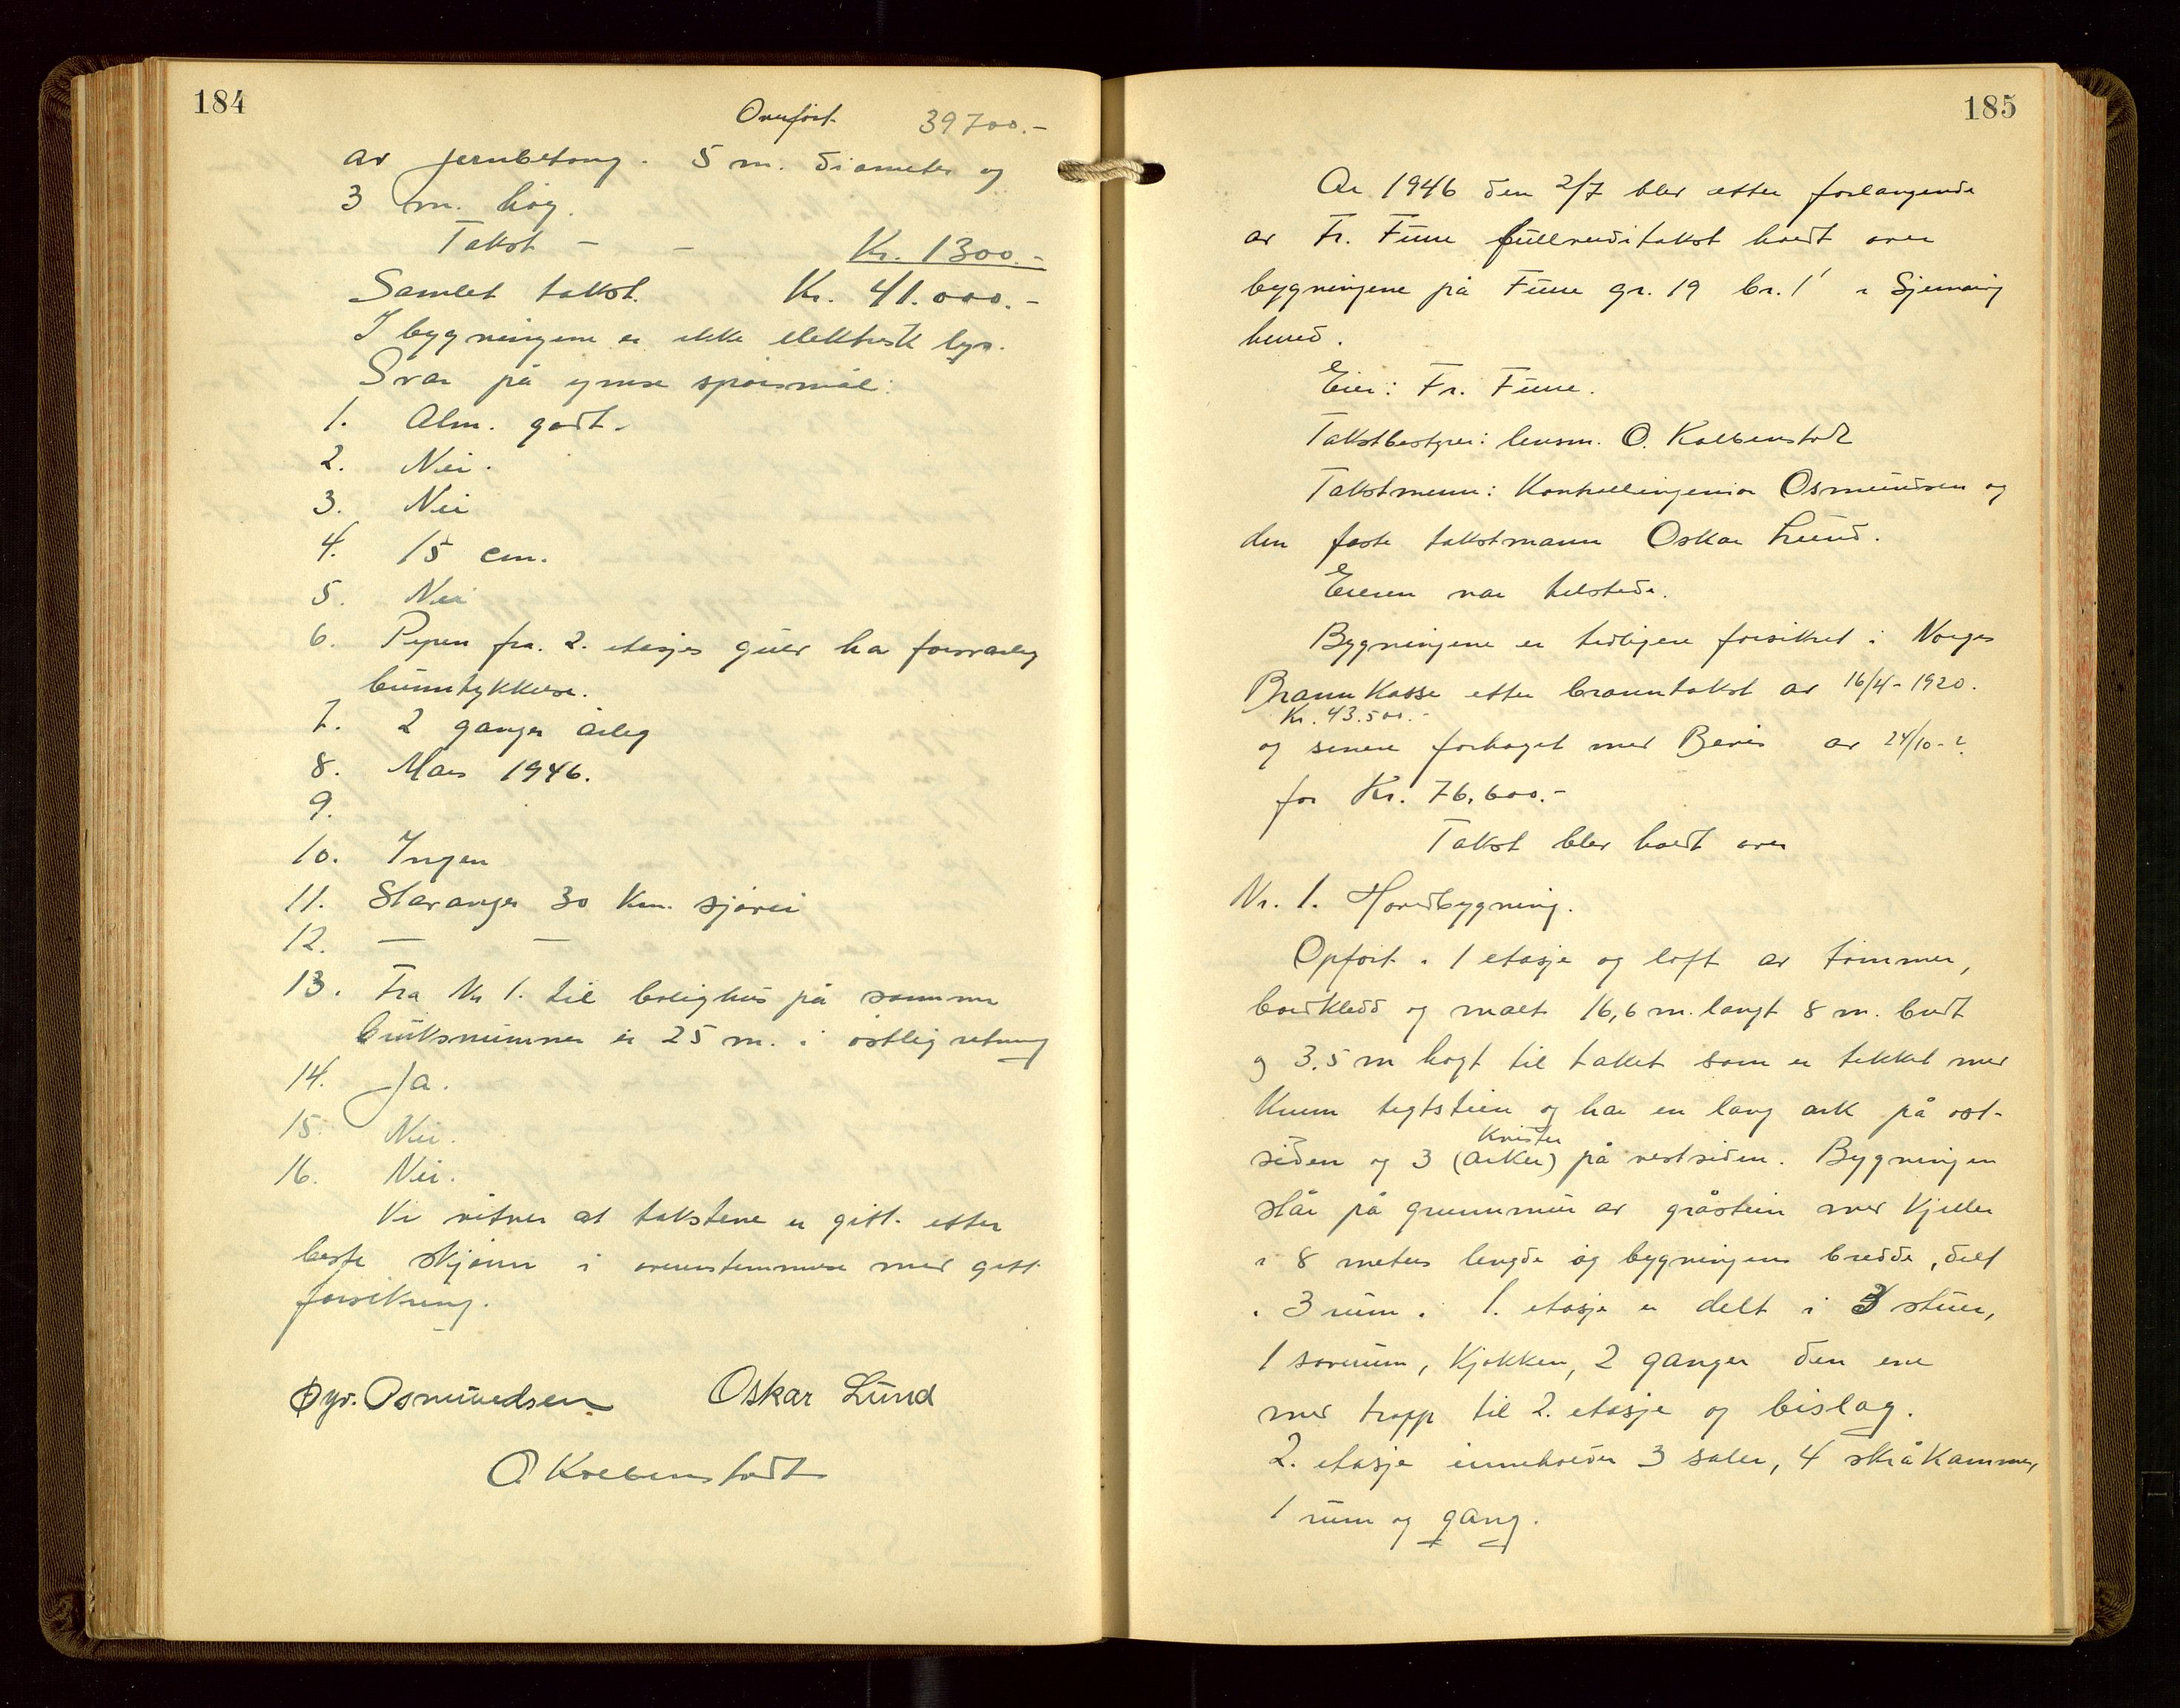 184
Overført 39700.-
av jernbetong. 5 m. diameter og
3 m. høg.
Takst - - Kr. 1300.-
Samlet takst. Kr. 41.000.-
I bygningene er ikke elektrisk lys.
Svar på ymse spørsmål:
1. Alm. godt.
2. Nei.
3. Nei
4. 15 cm.
5. Nei
6. Pipen fra 2. etasjes gulv har forsvarlig
bunntykkelse.
7. 2 ganger årleg
8. Mars 1946.
9.
10. Ingen
11. Stavanger 30 km. sjøvei
12. — —
13. Fra Nr 1. til bolighus på samme
bruksnummer er 25 m. i østlig retning
14. Ja.
15. Nei.
16. Nei.
Vi vitner at takstene er gitt etter
beste skjønn i overenstemmelse med gitt
forsikring.
Øyv. Osmundsen Oskar Lund
O. Kolbenstvedt
185
År 1946 den 2/7 blev etter forlangende
av Fr. Fuue fullverditakst holdt over
bygningene på Fuue gr. 19 br. 1 i Sjernarøy
herred.
Eier: Fr. Fuue.
Takstbestyrer: lensm. O. Kolbenstvedt
Takstmenn: Kontrollingeniør Osmundsen og
den faste takstmann Oskar Lund.
Eieren var tilstede.
Bygningene er tidligere forsikret i Norges
Brannkasse etter branntakst av 16/4-1920.
Kr. 43.500.-
og senere forhøyet med Bevis av 24/10-
for Kr. 76.600.-
Takst blev holdt over
Nr. 1. Hovedbygning.
Opført i 1 etasje og loft av tømmer,
bordkledd og malt 16,6 m. langt 8 m. bredt
og 3.5 m høgt til taket som er tekket med
krum teglstein og har en lang ark på øst-
kvister
siden og 3 (arker) på vestsiden. Bygningen
står på grunnmur av gråstein med kjeller
i 8 meters lengde og bygningens bredde, delt
i 3 rum. 1. etasje er delt i 3 stuer,
1 soverum, kjøkken, 2 ganger den ene
med trapp til 2. etasje og bislag.
2. etasje inneholder 3 saler, 4 skråkammer,
1 rum og gang.